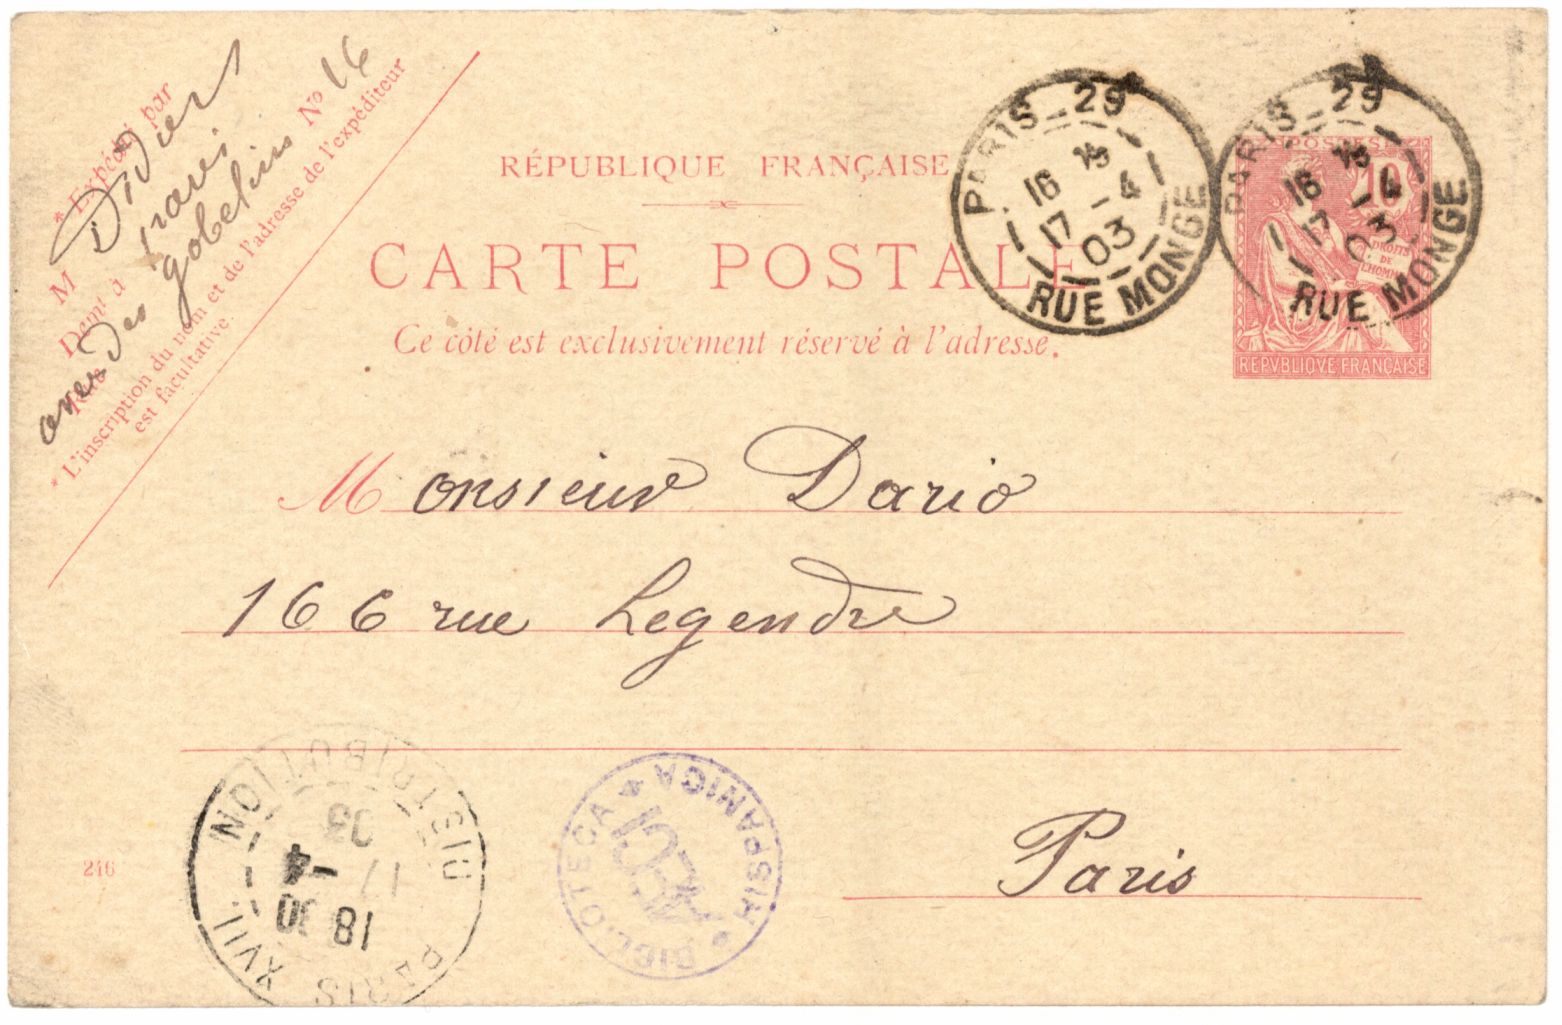 * Expédié par
M Didier
Demt à Paris
Rue ave des gobelins No 16
* L'inscription du nom et de l'adresse de l'expéditeur
est facultative.
RÉPUBLIQUE FRANÇAISE
CARTE POSTALE
Ce côté est exclusivement réservé à l'adresse.
PARIS_29
16
17 -4
03
RUE MONGE
PARIS_29
16
17 -4
03
RUE MONGE
POSTES
10
DROITS
DE
L'HOMME
REPVBLIQVE FRANÇAISE
Monsieur Dario
166 rue Legendre
Paris
246
PARIS XVII
DISTRIBUTION
18 30
17 -4
03
BIBLIOTECA
HISPAMICA